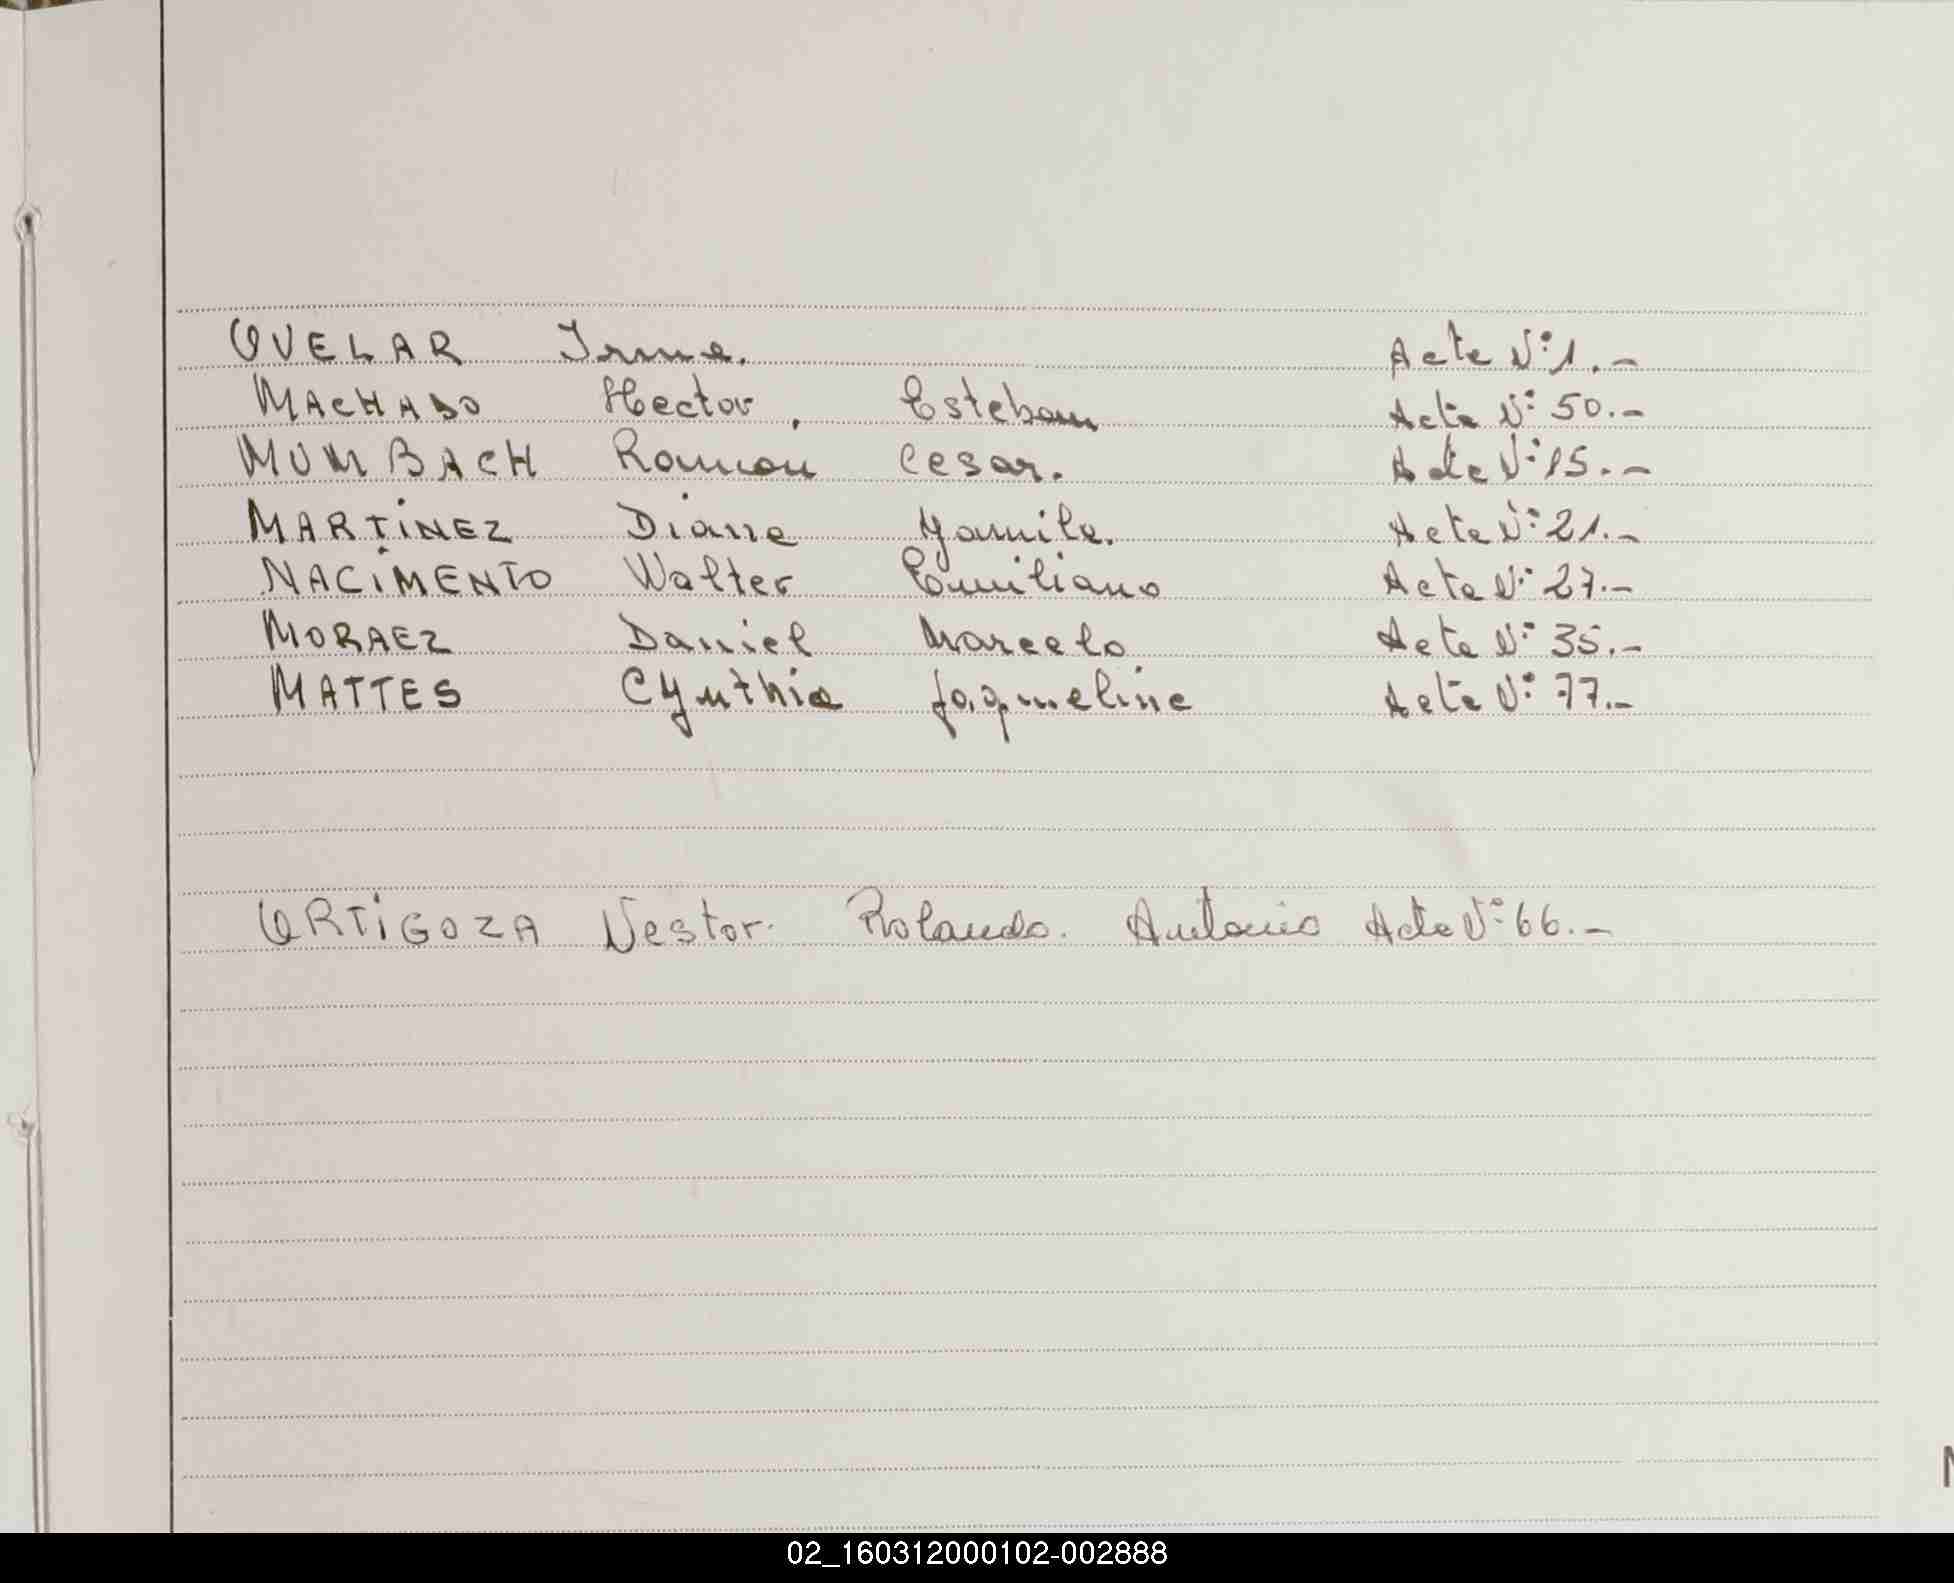 OVELAR Irma. Acta Nº 1.-
MACHADO Hector, Esteban Acta Nº 50.-
MUMBACH Ramon Cesar. Acta Nº 15.-
MARTINEZ Diana Yamila. Acta Nº 21.-
NACIMENTO Walter Emiliano Acta Nº 27.-
MORAEZ Daniel Marcelo Acta Nº 35.-
MATTES Cynthia Jaqueline Acta Nº 77.-
ORTIGOZA Nestor. Rolando. Antonio Acta Nº 66.-
02_160312000102-002888